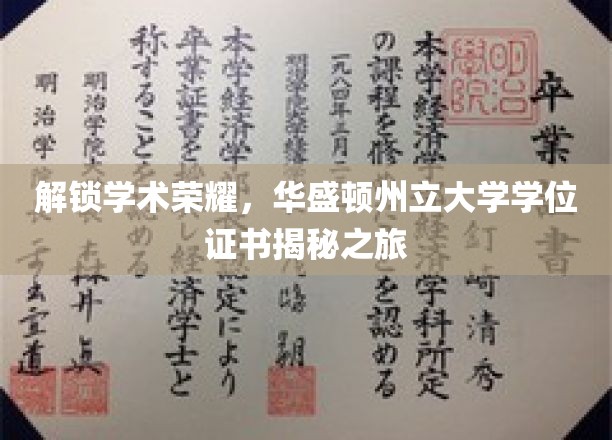 解锁学术荣耀，华盛顿州立大学学位
证书揭秘之旅
卒業 書
明治學院
釘崎清秀
本学経済学 済学科所定
の課程を修 を認める
一九八四年三月二
本学経済学部 認定により
卒業証書を し経済学士と
称することを認める
明治学院大
明治学院